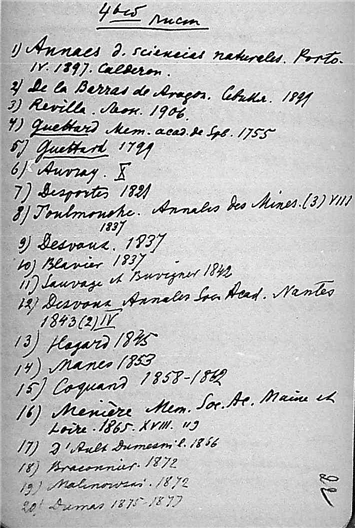 1) Annaes d. sciencias naturales. Porto.
IV. 1897. Calderon.
2) De la Barras de Aragon. 1899
3) Revilla. 1906.
4) Guettard Mem. acad. de 1755
5) Guettard 1799
6) Auvray. X
7) Desportes 1821
8) Toulmouche. Annales des Mines. (3) VIII
1837
9) Desvoux. 1837
10) Blavier 1837
11) Sauvage et Buvignier 1842
12) Desvoux Annales Soc. Acad. Nantes
1843 (2) IV
13) Hogard 1845
14) Manes 1853
15) Coquand 1858-1862
16) Menière Mem. Soc. Ac. Maine et
Loire. 1865. XVIII. 119
17) D'Ault Dumesnil. 1866
18) Braconnier. 1872
19) Malinowski. 1872
20) Dumas 1875-1877